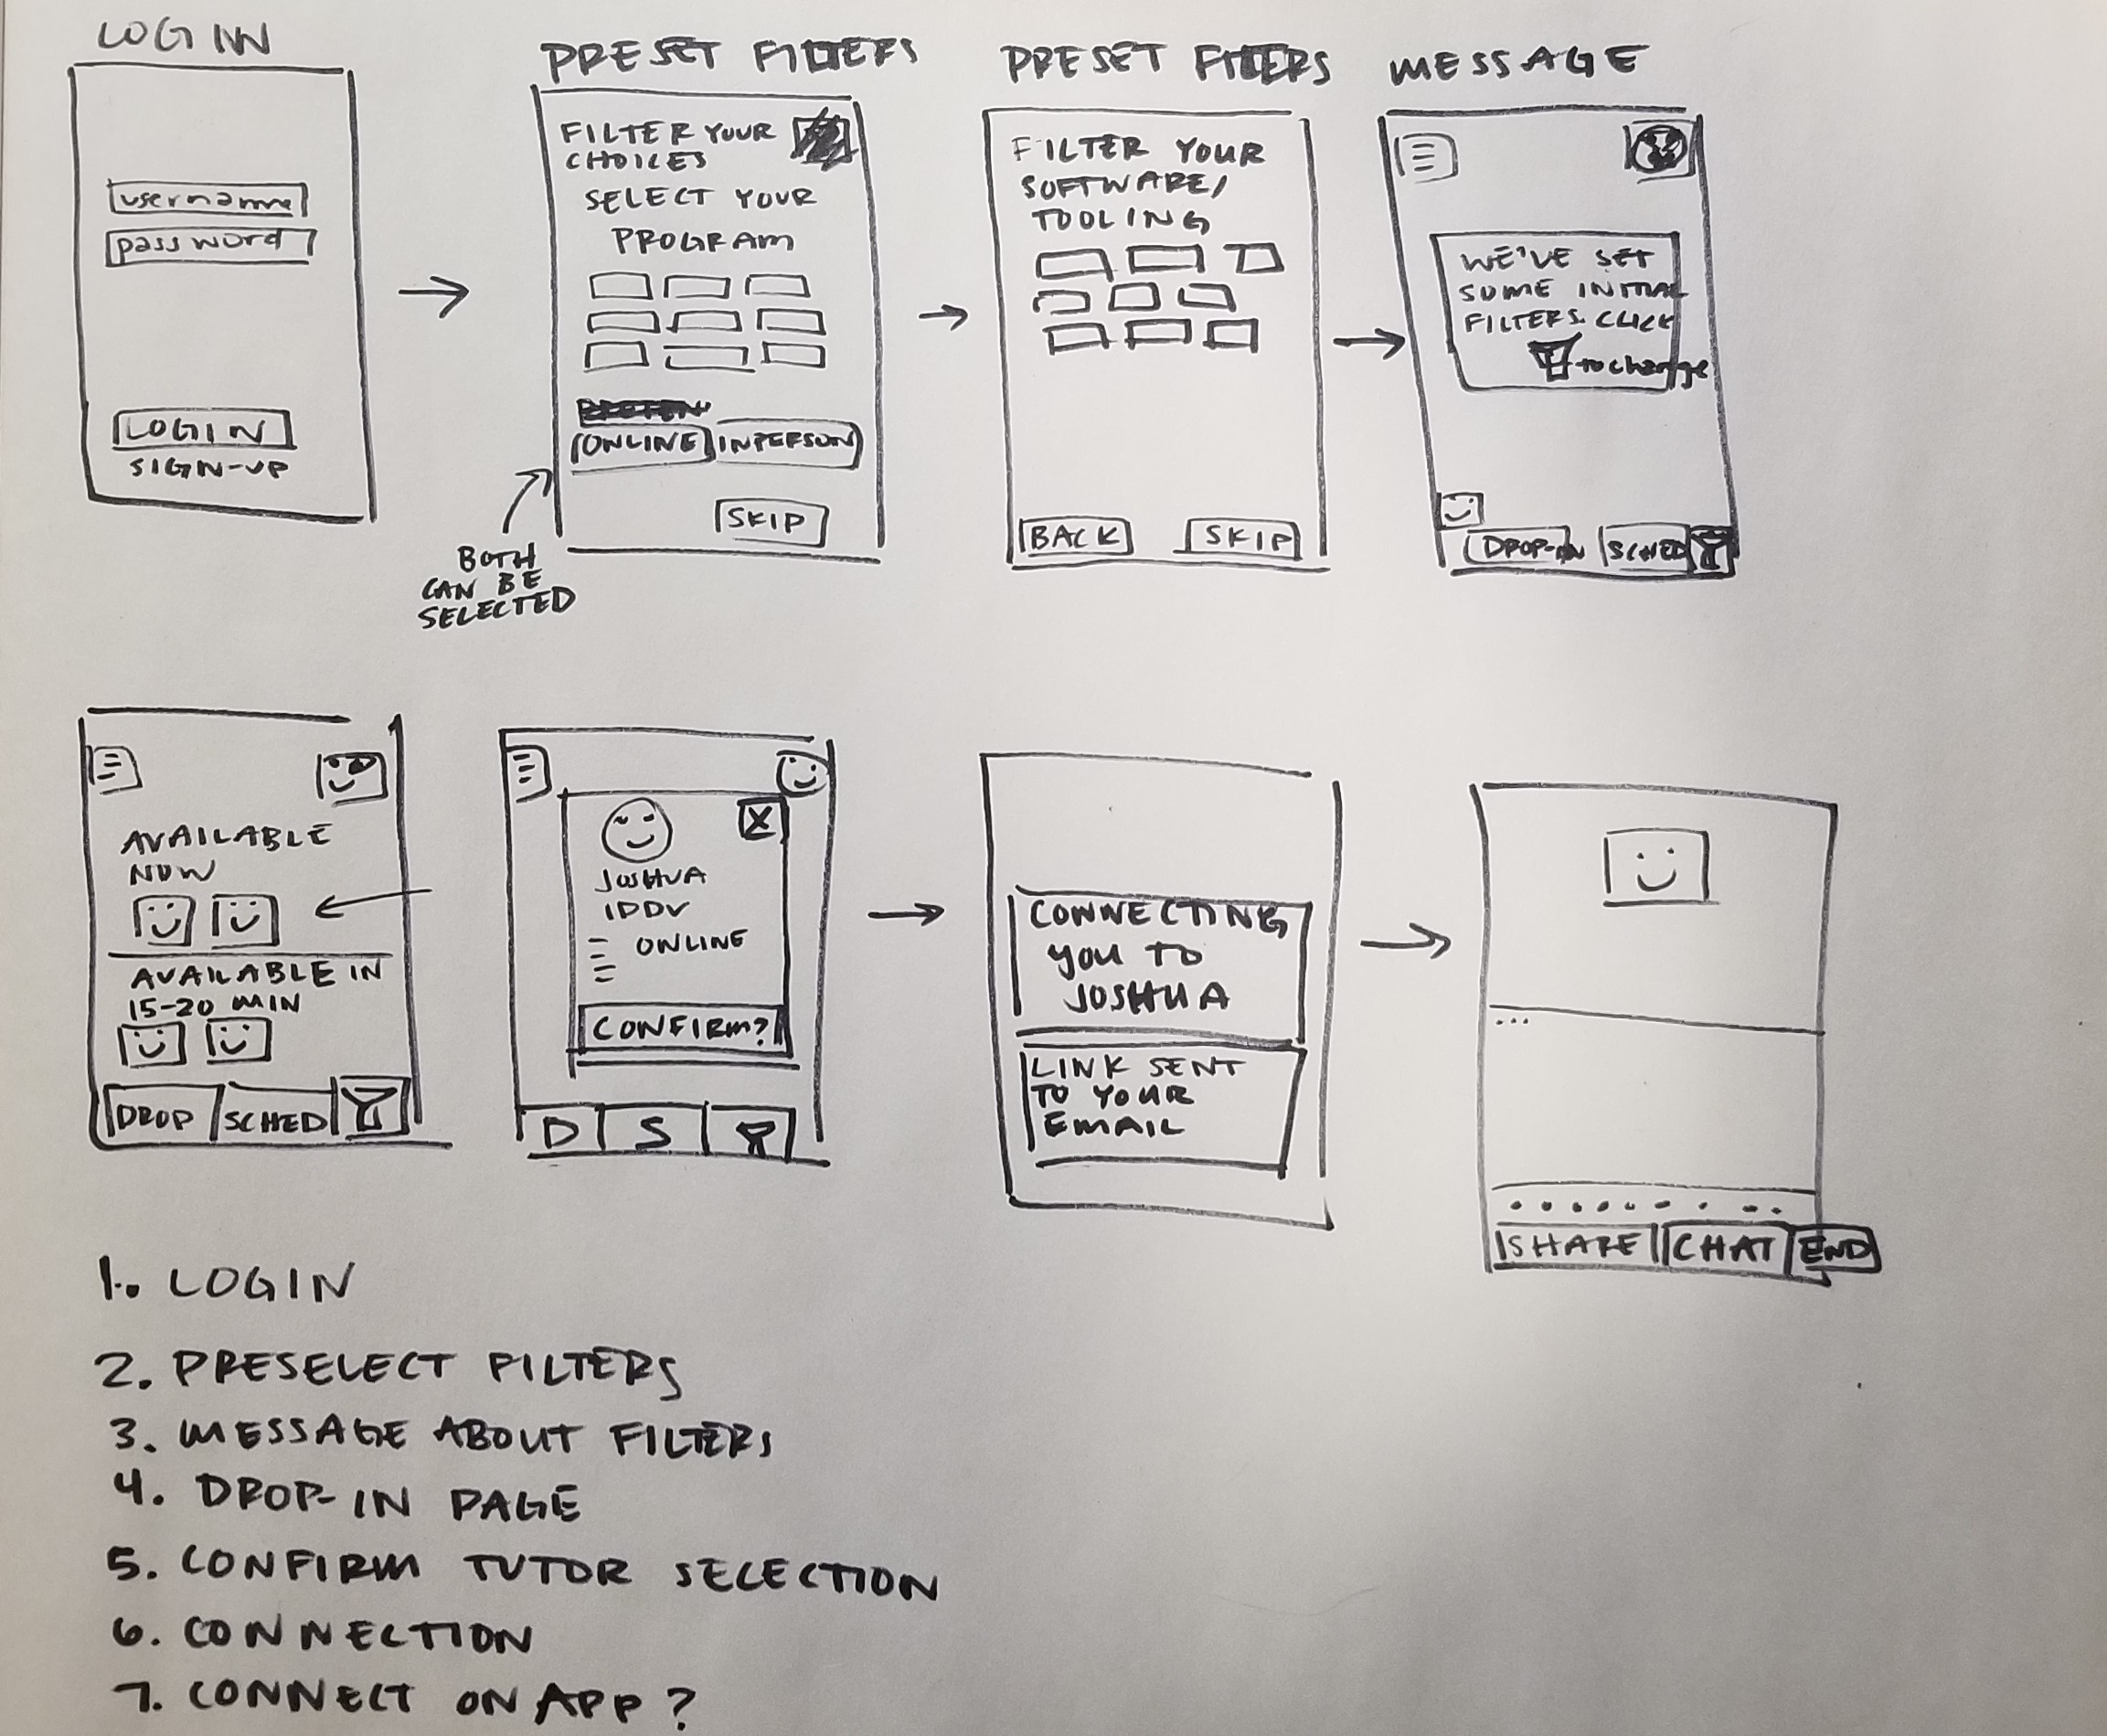 LOGIN
username
password
LOGIN
SIGN-UP
PRESET FILTERS
FILTER YOUR
CHOICES
SELECT YOUR
PROGRAM
ONLINE INPERSON
SKIP
BOTH
CAN BE
SELECTED
PRESET FILTERS
FILTER YOUR
SOFTWARE/
TOOLING
BACK SKIP
MESSAGE
WE'VE SET
SOME INITIAL
FILTERS. CLICK
to change
DROP-IN SCHED
AVAILABLE
NOW
AVAILABLE IN
15-20 MIN
DROP SCHED
X
JOSHUA
IDDV
ONLINE
CONFIRM?
D S
CONNECTING
YOU TO
JOSHUA
LINK SENT
TO YOUR
EMAIL
...
SHARE CHAT END
1. LOGIN
2. PRESELECT FILTERS
3. MESSAGE ABOUT FILTERS
4. DROP-IN PAGE
5. CONFIRM TUTOR SELECTION
6. CONNECTION
7. CONNECT ON APP?